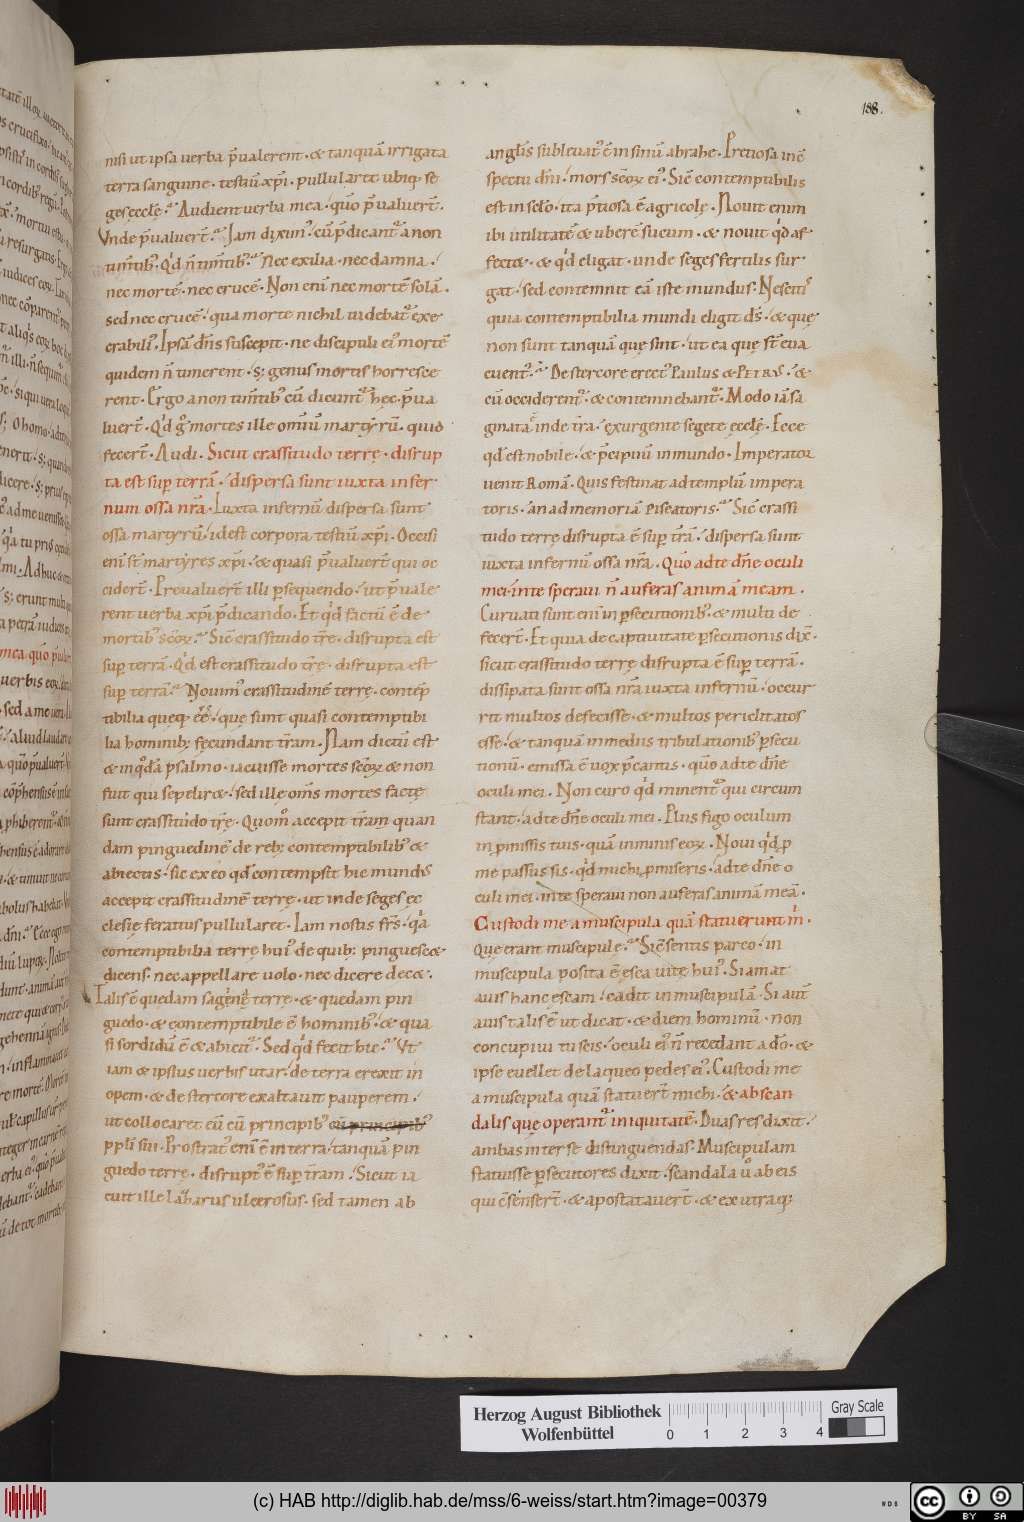 188.
nisi ut ipsa uerba p̄ualerent · & tanquā irrigata
terra sanguine · testiū xp̄i · pullularet ubiq; se
ges ęcclę · Audient uerba mea · quō p̄ualuer̄t ·
Vnde p̄ualuer̄t · Jam diximꝰ · cū p̄dicant᷑ a non
nec mortē · nec crucē · Non enī nec mortē solā ·
sed nec crucē · qua morte nichil uidebat᷑ exe
crabiliꝰ · Ipsā dn̄s suscepit · ne discipuli eiꝰ mortē
quidem n̄ timerent · s; genus mortis horresce
rent · Ergo a non timētibꝰ cū dicunt᷑ hęc · p̄ua
luer̄t · Qd̄ g̊ mortes ille omniū martyrū · quid
fecer̄t · Audi · Sicut crassitudo terrę · disrup
ta est sup̄ terrā · dispersa sunt iuxta infer
num ossa nr̄a · Iuxta infernū dispersa sunt
ossa martyrū · idest corpora testiū xp̄i · Occisi
enī st̄ martyres xp̄i · & quasi p̄ualuer̄t qui oc
cider̄t · Preualuer̄t illi p̄sequendo · ut p̄uale
rent uerba xp̄i p̄dicando · Et qd̄ factū ē de
mortibꝰ sc̄oꝝ · Sic̄ crassitudo tr̄ę · disrupta est
sup̄ terrā · Qd̄ est crassitudo tr̄ę · disrupta est
sup terrā · Nouimꝰ crassitudinē terrę · contēp
tibilia queq; ēē · quę sunt quasi contemptibi
lia hominib; fecundant tr̄am · Nam dictū est
& in qd̄ā psalmo · iacuisse mortes sc̄oꝝ & non
fuit qui sepelir& · sed ille om̄s mortes factę
sunt crassitudo tr̄ę · Quom̊ accepit tr̄am quan
dam pinguedinē de reb; contemptibilibꝰ &
abiectis · sic ex eo qd̄ contempsit hic mundꝰ
accepit crassitudinē terrę · ut inde seges ęc
clesię feratius pullularet · Iam nostis fr̄s · q̄a
contemptibilia terrę huiꝰ de quib; pinguesc&
dicens · nec appellare uolo · nec dicere dec& ·
Talis ē quedam sagēnē terre · & quedam pin
guedo · & contemptibile ē hominibꝰ · & qua
si sordidū ē & abicit᷑ · Sed qd̄ fecit hic · Vt
iam & ipsius uerbis utar · de terra erexit in
opem · & de stercore exaltauit pauperem ·
ut collocaret eū cū principibꝰ cū principibꝰ
pp̄li sui · Prostratꝰ enī ē in terra · tanquā pin
guedo terrę · disruptꝰ ē sup̄ tr̄am · Sicut ia
cuit ille Lazarus ulcerosus · sed tamen ab
angl̄is subleuatꝰ ē in sinū abrahe · Preciosa in c̄
spectu dn̄i · mors sc̄oꝝ eiꝰ · Sic̄ contemptibilis
est in sc̄lo · ita p̄tiosa ē agricolę · Nouit enim
ibi utilitatē & uberē sucum · & nouit qd̄ af
fect& · & qd̄ eligat · unde seges fertilis sur
gat · sed contemnit eā iste mundus · Nescitis
quia contemptibilia mundi eligit ds̄ · & quę
non sunt tanquā quę sint · ut ea quę st̄ eua
cuent᷑ · De stercore erectꝰ Paulus & Petrus · &
cū occiderent᷑ · & contemnebant᷑ · Modo iā sa
ginata inde tr̄a · exurgente segete ęcclę · Ecce
qd̄ est nobile · & p̄cipuū in mundo · Imperator
uenit Romā · Quis festinat ad templū impera
toris · an ad memoriā Piscatoris · Sic̄ crassi
tudo terrę disrupta ē sup̄ tr̄ā · dispersa sunt
iuxta infernū ossa nr̄a · Quō ad te dn̄e oculi
mei · in te speraui n̄ auferas animā meam ·
Curuati sunt enī in p̄secutionibꝰ · & multi de
fecer̄t · Et quia de captiuitate p̄secutionis dix̄ ·
sicut crassitudo terrę disrupta ē sup̄ terrā ·
dissipata sunt ossa nr̄a iuxta infernū · occur
rit multos defecisse · & multos periclitatos
esse · & tanquā in mediis tribulationibꝰ p̄secu
tionū · emissa ē uox p̄cantis · quō ad te dn̄e
oculi mei · Non curo qd̄ minent᷑ qui circum
stant · ad te dn̄e oculi mei · Plus figo oculum
in p̄missis tuis · quā in minis eoꝝ · Noui qd̄ p̄
me passus sis · qd̄ michi p̄miseris · ad te dn̄e o
culi mei · in te speraui non auferas animā meā ·
Custodi me a muscipula quā statuerunt m̄ ·
Que erant muscipule · Si c̄sentis parco · in
muscipula posita ē esca uitę huiꝰ · Si amat
auis hanc escam · cadit in muscipulā · Si aut̄
auis talis ē ut dicat · & diem hominū · non
concupiui tu scis · oculi eiꝰ n̄ recedant a dō · &
ipse euellet de laqueo pedes eiꝰ · Custodi me
a muscipula quā statuer̄t michi · & ab scan
dalis que operant᷑ iniquitatē · Duas res dixit ·
ambas inter se distinguendas · Muscipulam
statuisse p̄secutores dixit · scandala ů ab eis
qui c̄senser̄t · & apostatauer̄t · & ex utraq;
Herzog August Bibliothek
Wolfenbüttel
0 1 2 3 4
Gray Scale
(c) HAB http://diglib.hab.de/mss/6-weiss/start.htm?image=00379
cc BY SA